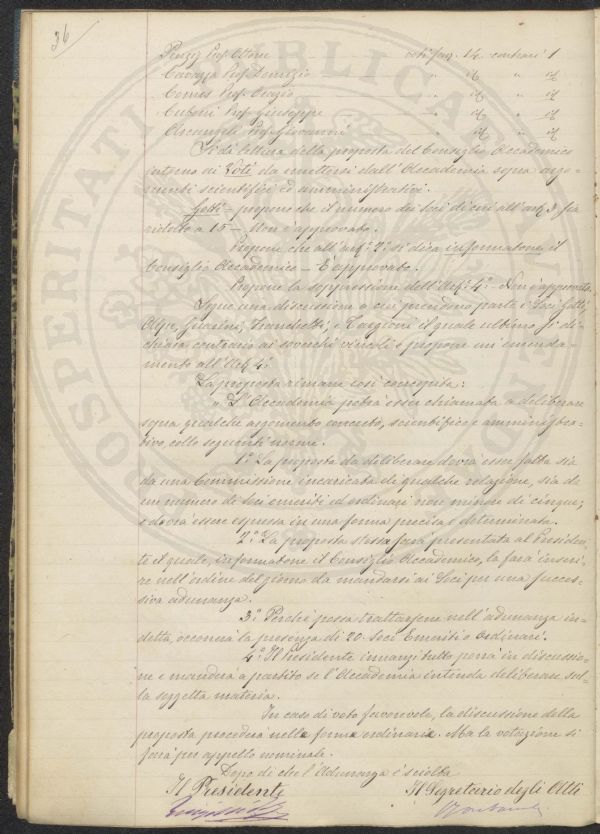 36
Penzig Prof. Ottone — voti fav. 14 contrari 1
Cavazza Prof. Domizio — " id " id
Comes Prof. Orazio — " id " id
Cuboni Prof. Giuseppe — " id " id
Arcangeli Prof. Giovanni " id " id
Si dà lettura della proposta del Consiglio Accademico
intorno ai Voti da emettersi dall'Accademia sopra argo-
menti scientifici ed amministrativi.
Gotti – propone che il numero dei Soci di cui all'art. 3 sia
ridotto a 15 – Non è approvato.
Propone che all'art.° 2° si dica informatone il
Consiglio Accademico – È approvato.
Propone la soppressione dell'Art.° 4° – Non è approvata.
Segue una discussione a cui prendono parte i Soci Gotti,
Alpe, Franchetti, e Targioni il quale ultimo si di-
chiara contrario ai soverchi vincoli e propone un'emenda-
mento all'Art. 4°.
La proposta rimane così concepita:
" L'Accademia potrà esser chiamata a deliberare
sopra qualche argomento concreto, scientifico e amministra-
tivo, colle seguenti norme.
1.° La proposta da deliberare dovrà esser fatta sia
da una Commissione incaricata di qualche relazione, sia da
un numero di Soci emeriti ed ordinari non minore di cinque;
e dovrà essere espressa in una forma precisa e determinata.
2.° La proposta stessa sarà presentata al Presiden-
te il quale, informatone il Consiglio Accademico, la farà inseri-
re nell'ordine del giorno da mandarsi ai Soci per una succes-
siva adunanza.
3.° Perchè possa trattarsene nell'adunanza in-
detta, occorrerà la presenza di 20 Soci Emeriti o Ordinari.
4.° Il Presidente innanzi tutto porrà in discussio-
ne e manderà a partito se l'Accademia intenda deliberare sul-
la soggetta materia.
In caso di voto favorevole, la discussione della
proposta procederà nelle forme ordinarie. Ma la votazione si
farà per appello nominale.
Dopo di che l'Adunanza è sciolta
Il Presidente Il Segretario degli Atti
PROSPERITATI PUBLICAE AUGENDAE